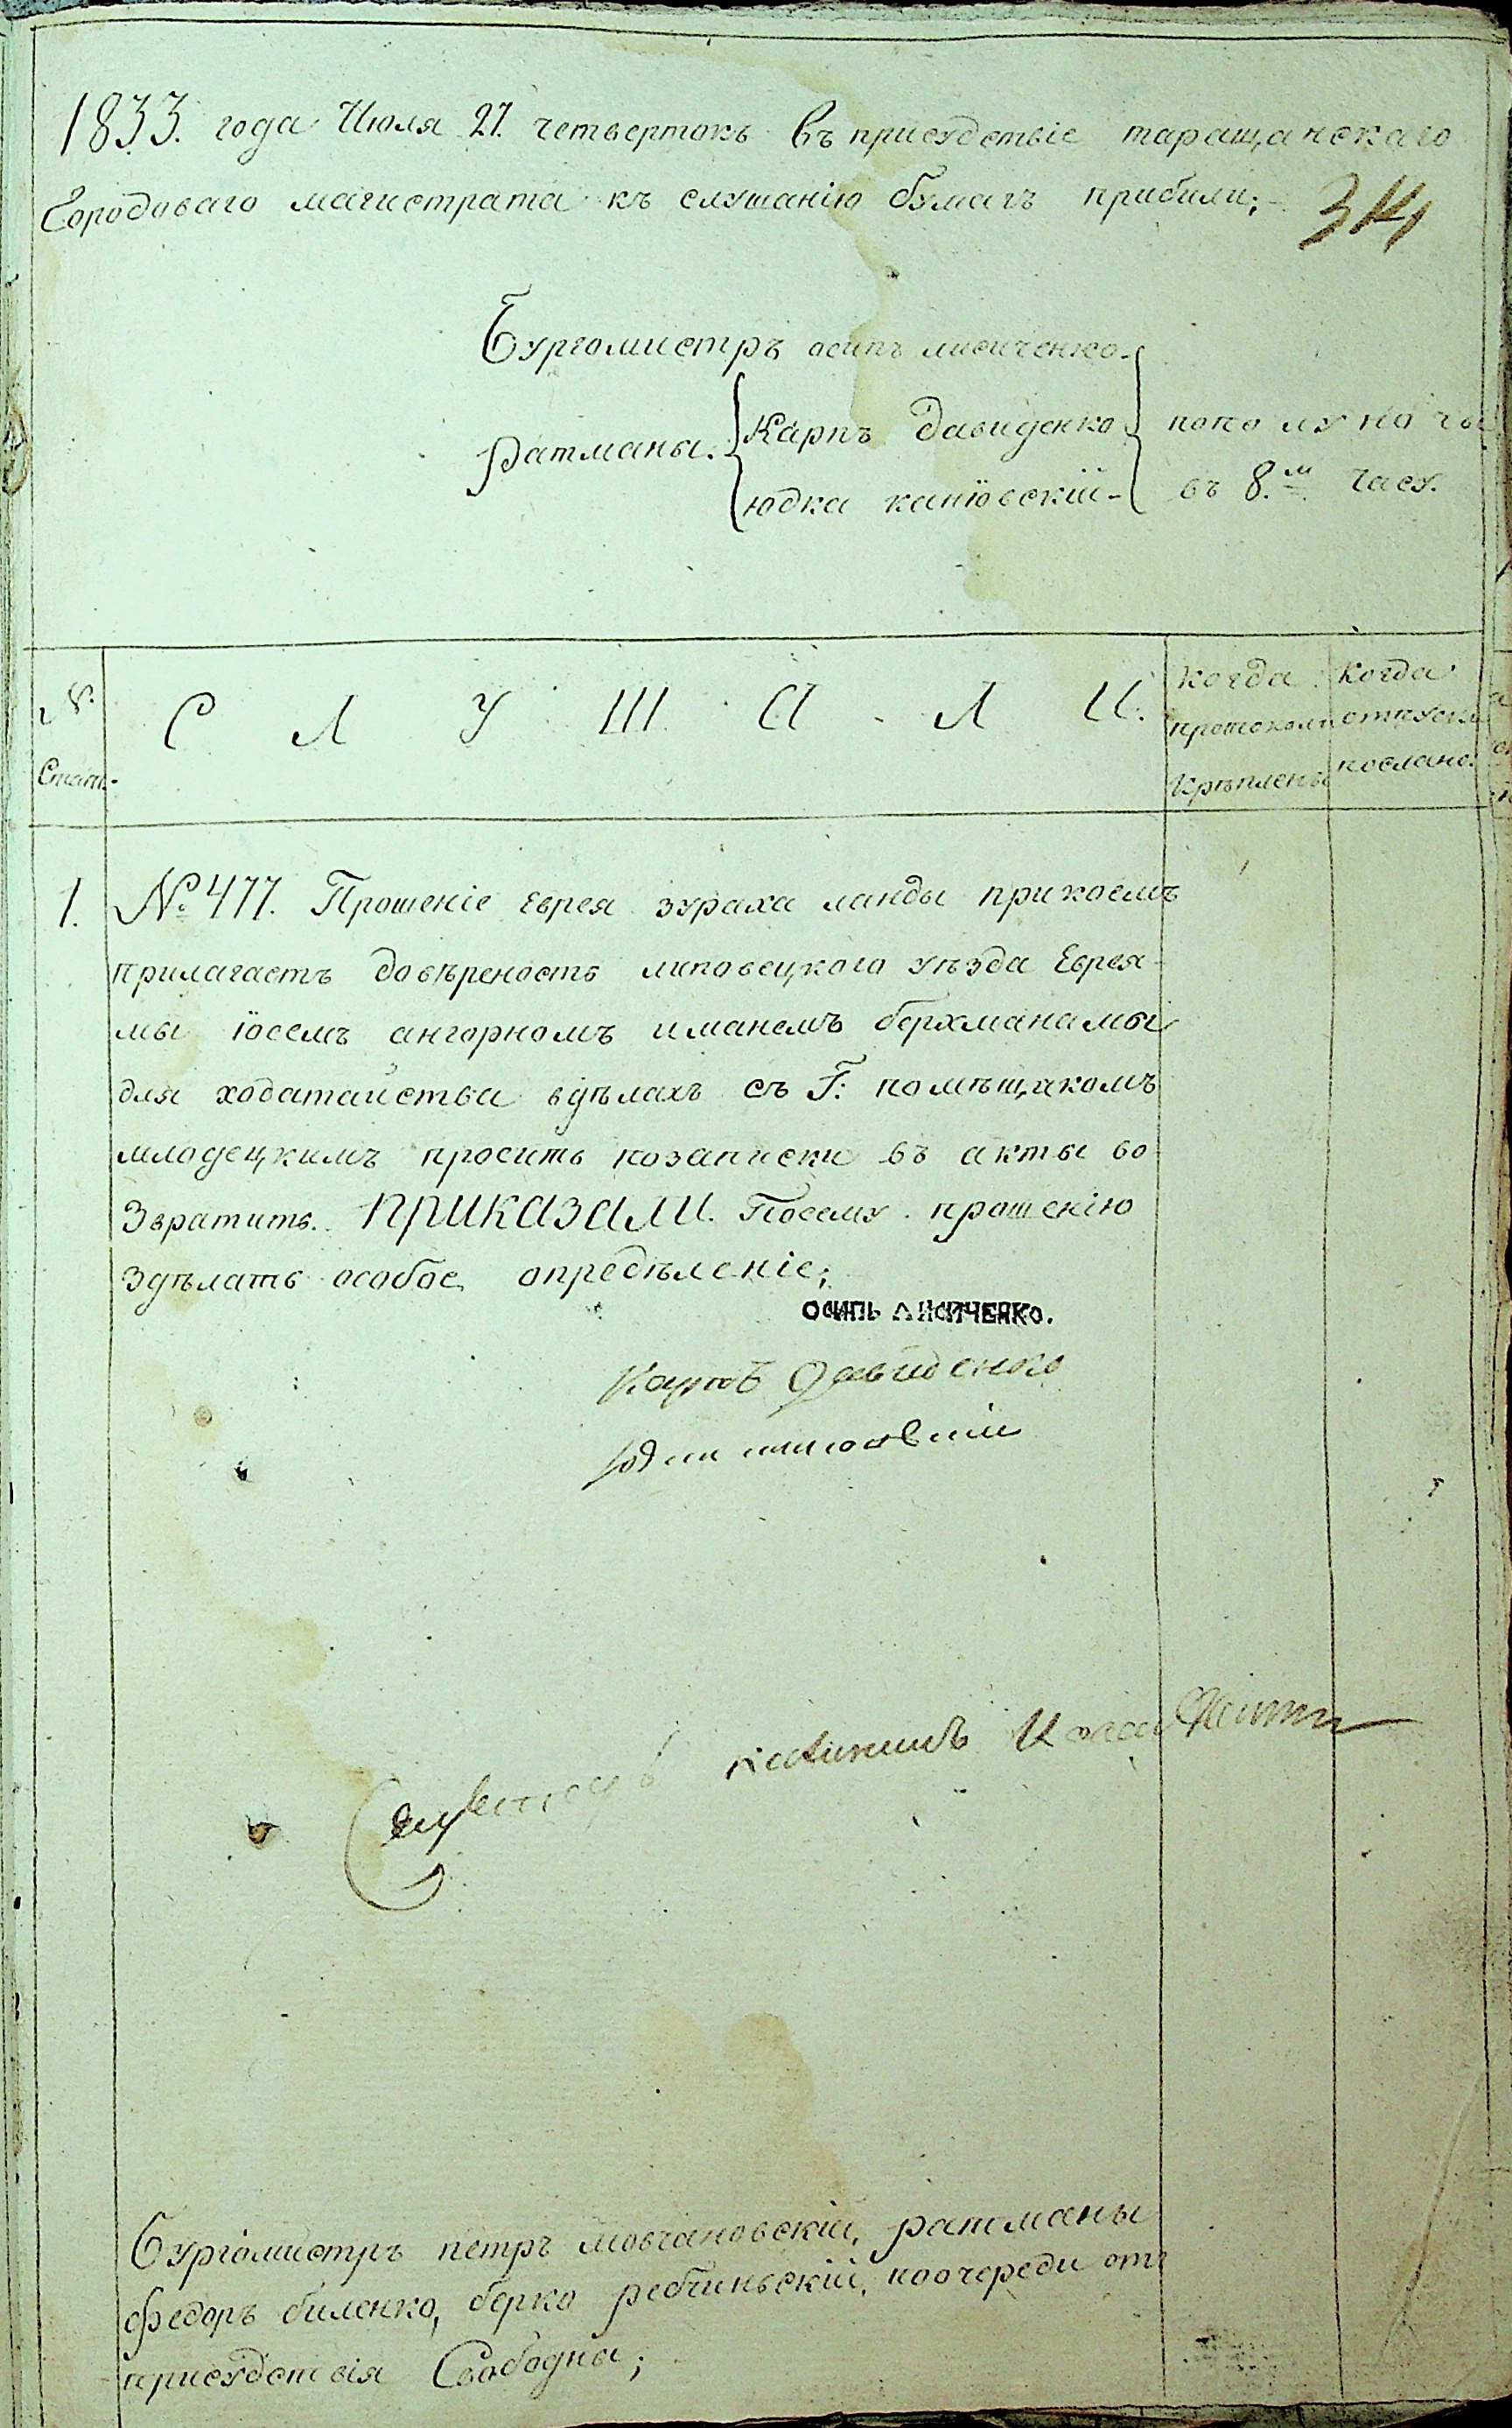 1833. года Июля 27. четвертокъ въ присудствіе таращанскаго
Городоваго магистрата къ слушанію бумагъ прибили;
34
Бургомистръ осипъ лисиченко.
Ратманы. Карпъ Давиденко
юдка каніовскій
пополуночы
въ 8.м часу.
№.
Стат.
С Л У Ш А Л И.
когда протоколы крѣплены
Когда отпуски послано.
1.
№ 477. Прошеніе Еврея зураха ланды прикоемъ
прилагаетъ довѣреность липовецкого уѣзда Еврея-
мы іосемъ ангорномъ иманемъ берхманамы
для ходатайства вдѣлахъ съ Г: помѣщикомъ
млодецкимъ просить позаписки въ акты во
звратить. приказали. Посему прошенію
здѣлать особое опредѣленіе;
осипь лисиченко.
Карпъ Давиденко
Бургомистръ петръ мовчановскій, ратманы
федоръ биленко, берко ребчиньскій, поочереди отъ
присудствія Свободны;